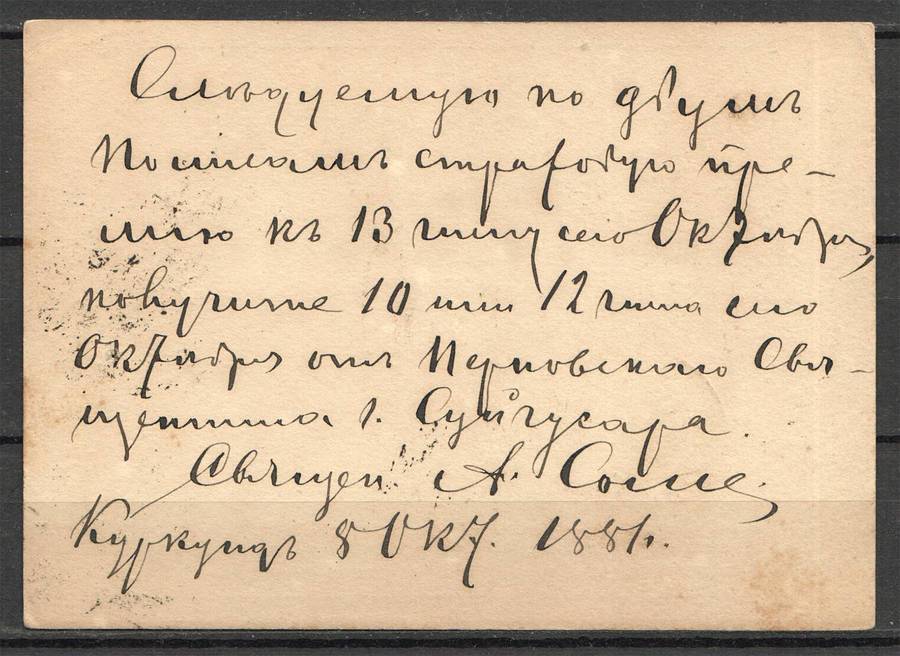 Слѣдуемую по двумъ
полисамъ страховую пре-
мію къ 13 числу сего Октября,
получите 10 или 12 числа сего
Октября отъ Перновскаго Свя-
щенника г. Суйгусара.
Священ. А.
Куркундъ 8 Окт. 1881 г.